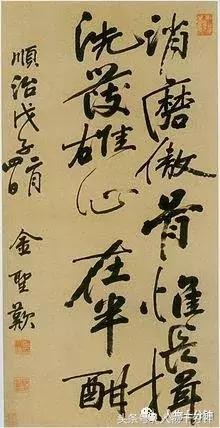 消磨傲骨惟長揖
洗發雄心在半酣
順治戊子
金聖歎
人物十分钟